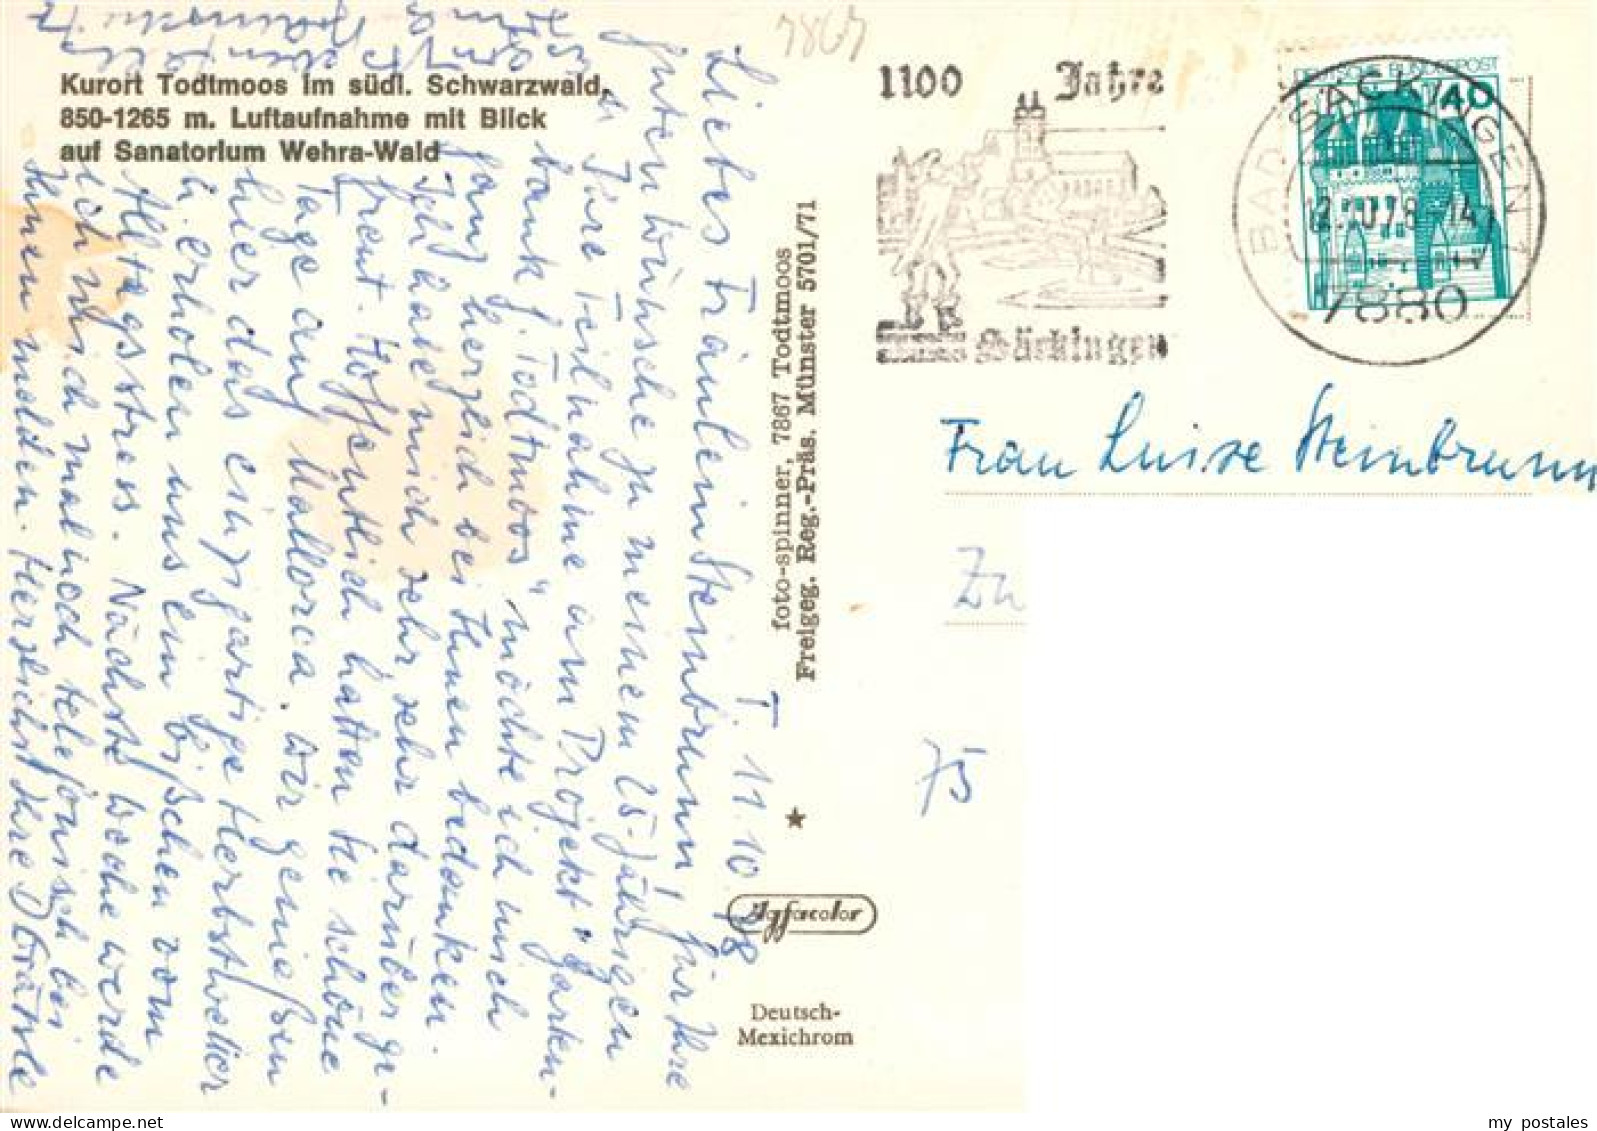 Kurort Todtmoos im südl. Schwarzwald,
850-1265 m. Luftaufnahme mit Blick
auf Sanatorium Wehra-Wald
T. 11.10.78
Liebes Fräulein Steinbrunn, für Ihre
guten Wünsche zu meinem 25-jährigen
u. Ihre Teilnahme am Projekt "Garten-
bank f. Todtmoos" möchte ich mich
ganz herzlich bei Ihnen bedanken.
Ich habe mich sehr sehr darüber ge-
freut. Hoffentlich hatten Sie schöne
Tage auf Mallorca. Wir genießen
hier das einzigartige Herbstwetter
u. erholen uns ein bißchen vom
Alltagsstress. Nächste Woche werde
ich mich mal noch telefonisch bei
Ihnen melden. Herzlichst Ihre
foto-spinner, 7867 Todtmoos
Freigeg. Reg.-Präs. Münster 5701/71
Agfacolor
Deutsch-
Mexichrom
7867
1100 Jahre
Säckingen
DEUTSCHE BUNDESPOST
40
BAD SÄCKINGEN 1
12.10.78-14
7880
Frau Luise Steinbrunn
75
my postales